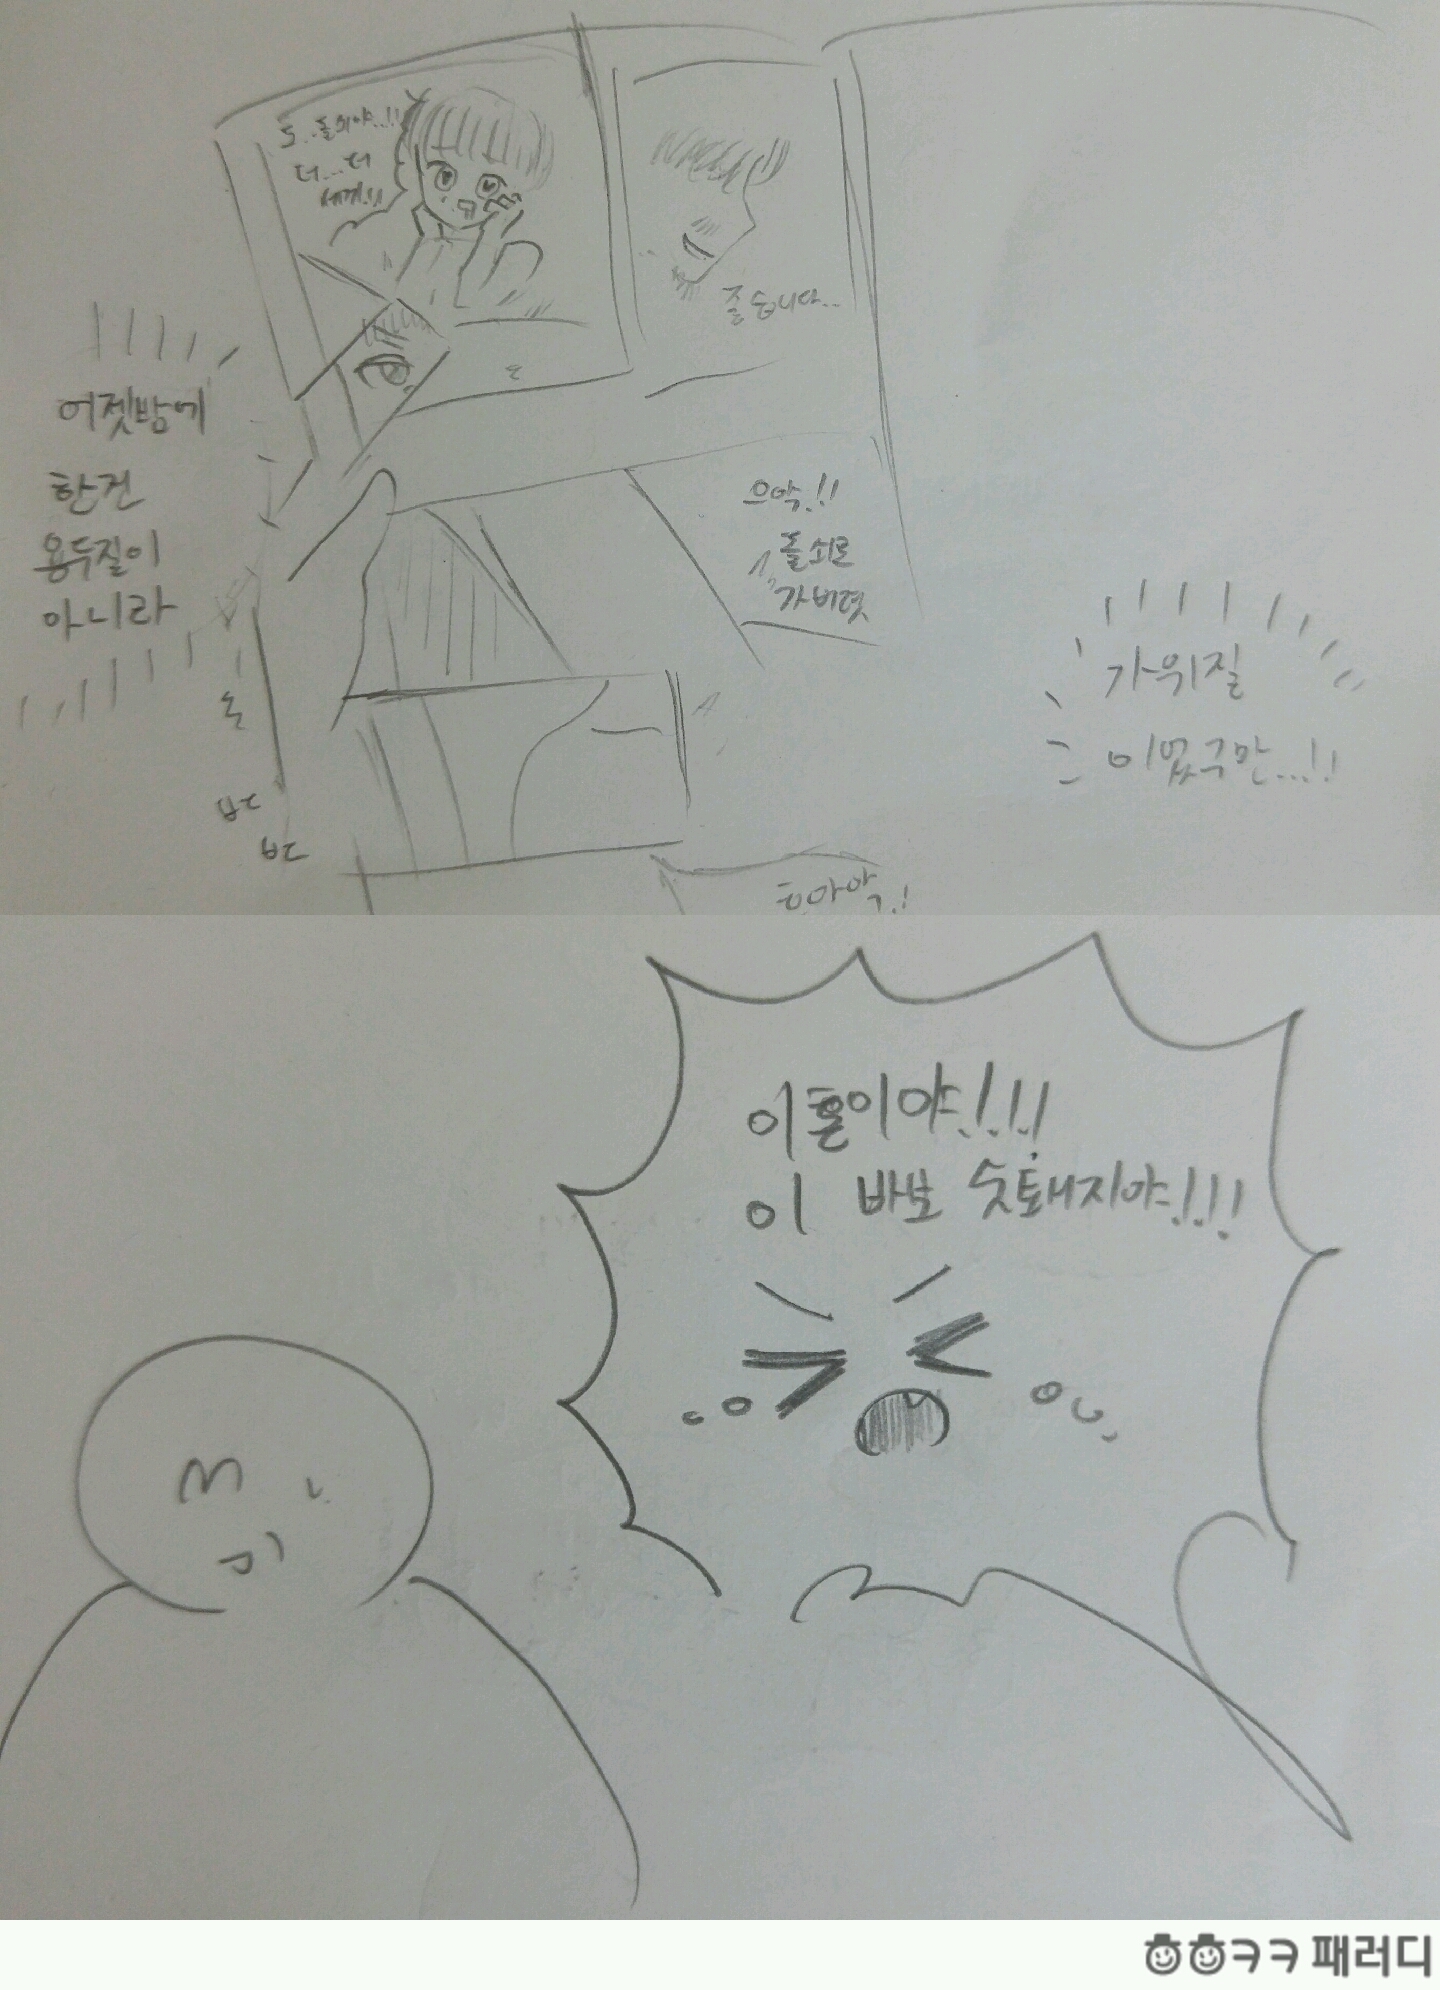 도..돌쇠야..!!
더...더
세게!!
좋습니다..
어젯밤에
한건
용두질이
아니라
으악.!!
돌쇠로
가버렷
가위질
이었구만...!!
흐아악.!
이혼이야!!!
이 바보 숫퇘지야!!!
ㅎㅎㅋㅋ 패러디